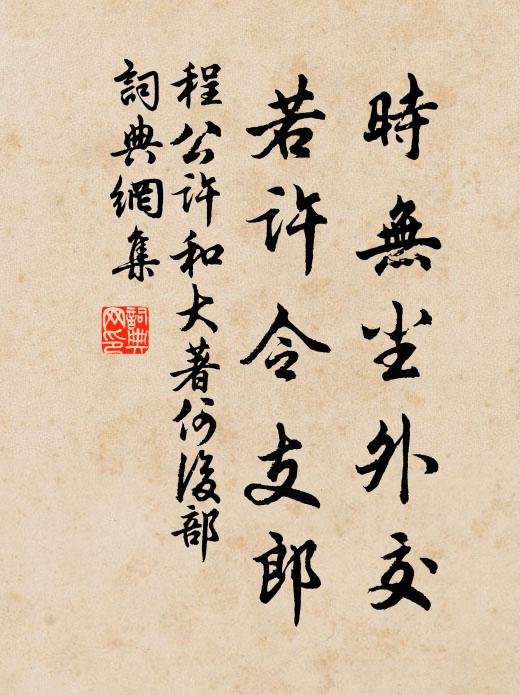 時無尘外交
若許令支郎
程公許和大著何部
詞典網集
詞典网印